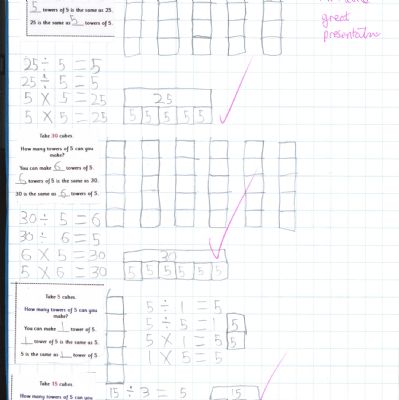 5 towers of 5 is the same as 25.
25 is the same as 5 towers of 5.
great
presentation
25 ÷ 5 = 5
25 ÷ 5 = 5
5 X 5 = 25
5 X 5 = 25
25
5 5 5 5 5
Take 30 cubes.
How many towers of 5 can you
make?
You can make 6 towers of 5.
6 towers of 5 is the same as 30.
30 is the same as 6 towers of 5.
30 ÷ 5 = 6
30 ÷ 6 = 5
6 X 5 = 30
5 X 6 = 30
30
5 5 5 5 5 5
Take 5 cubes.
How many towers of 5 can you
make?
You can make 1 tower of 5.
1 tower of 5 is the same as 5.
5 is the same as 1 tower of 5.
5 ÷ 1 = 5
5 ÷ 5 = 1
5 X 1 = 5
1 X 5 = 5
5
5
Take 15 cubes.
How many towers of 5 can you
15 ÷ 3 = 5
15